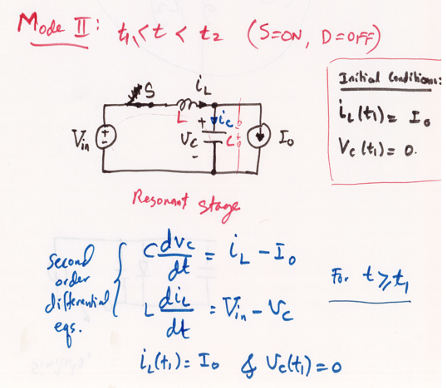 Mode II: t₁ < t < t₂ (S=ON, D=OFF)
Initial Conditions:
i_L(t₁) = I₀
V_c(t₁) = 0.
S
i_L
L
+
i_c
V_in
+
-
V_c
C
I₀
-
Resonant stage
second order differential eqs.
C dv_c/dt = i_L - I₀
L di_L/dt = V_in - V_c
For t ≥ t₁
i_L(t₁) = I₀ & V_c(t₁) = 0